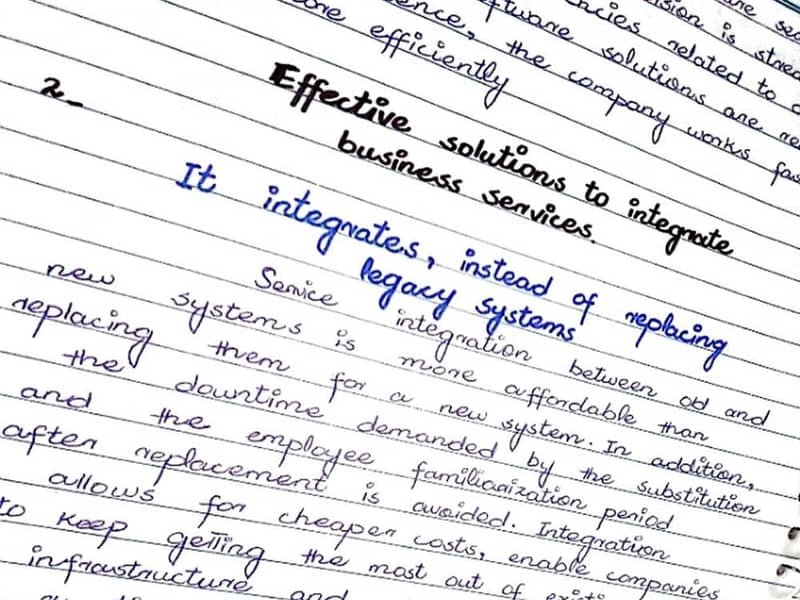 are sec
ision is stored
ncies related to
ftware solutions are
ence, the company works fas
efficiently
2_
Effective solutions to integrate
business services.
It integrates, instead of replacing
legacy systems
Service integration between old and
new systems is more affordable than
replacing them for a new system. In addition,
the downtime demanded by the substitution
and the employee familiarization period
after replacement is avoided. Integration
allows for cheaper costs, enable companies
to keep getting the most out of
infraustructure and